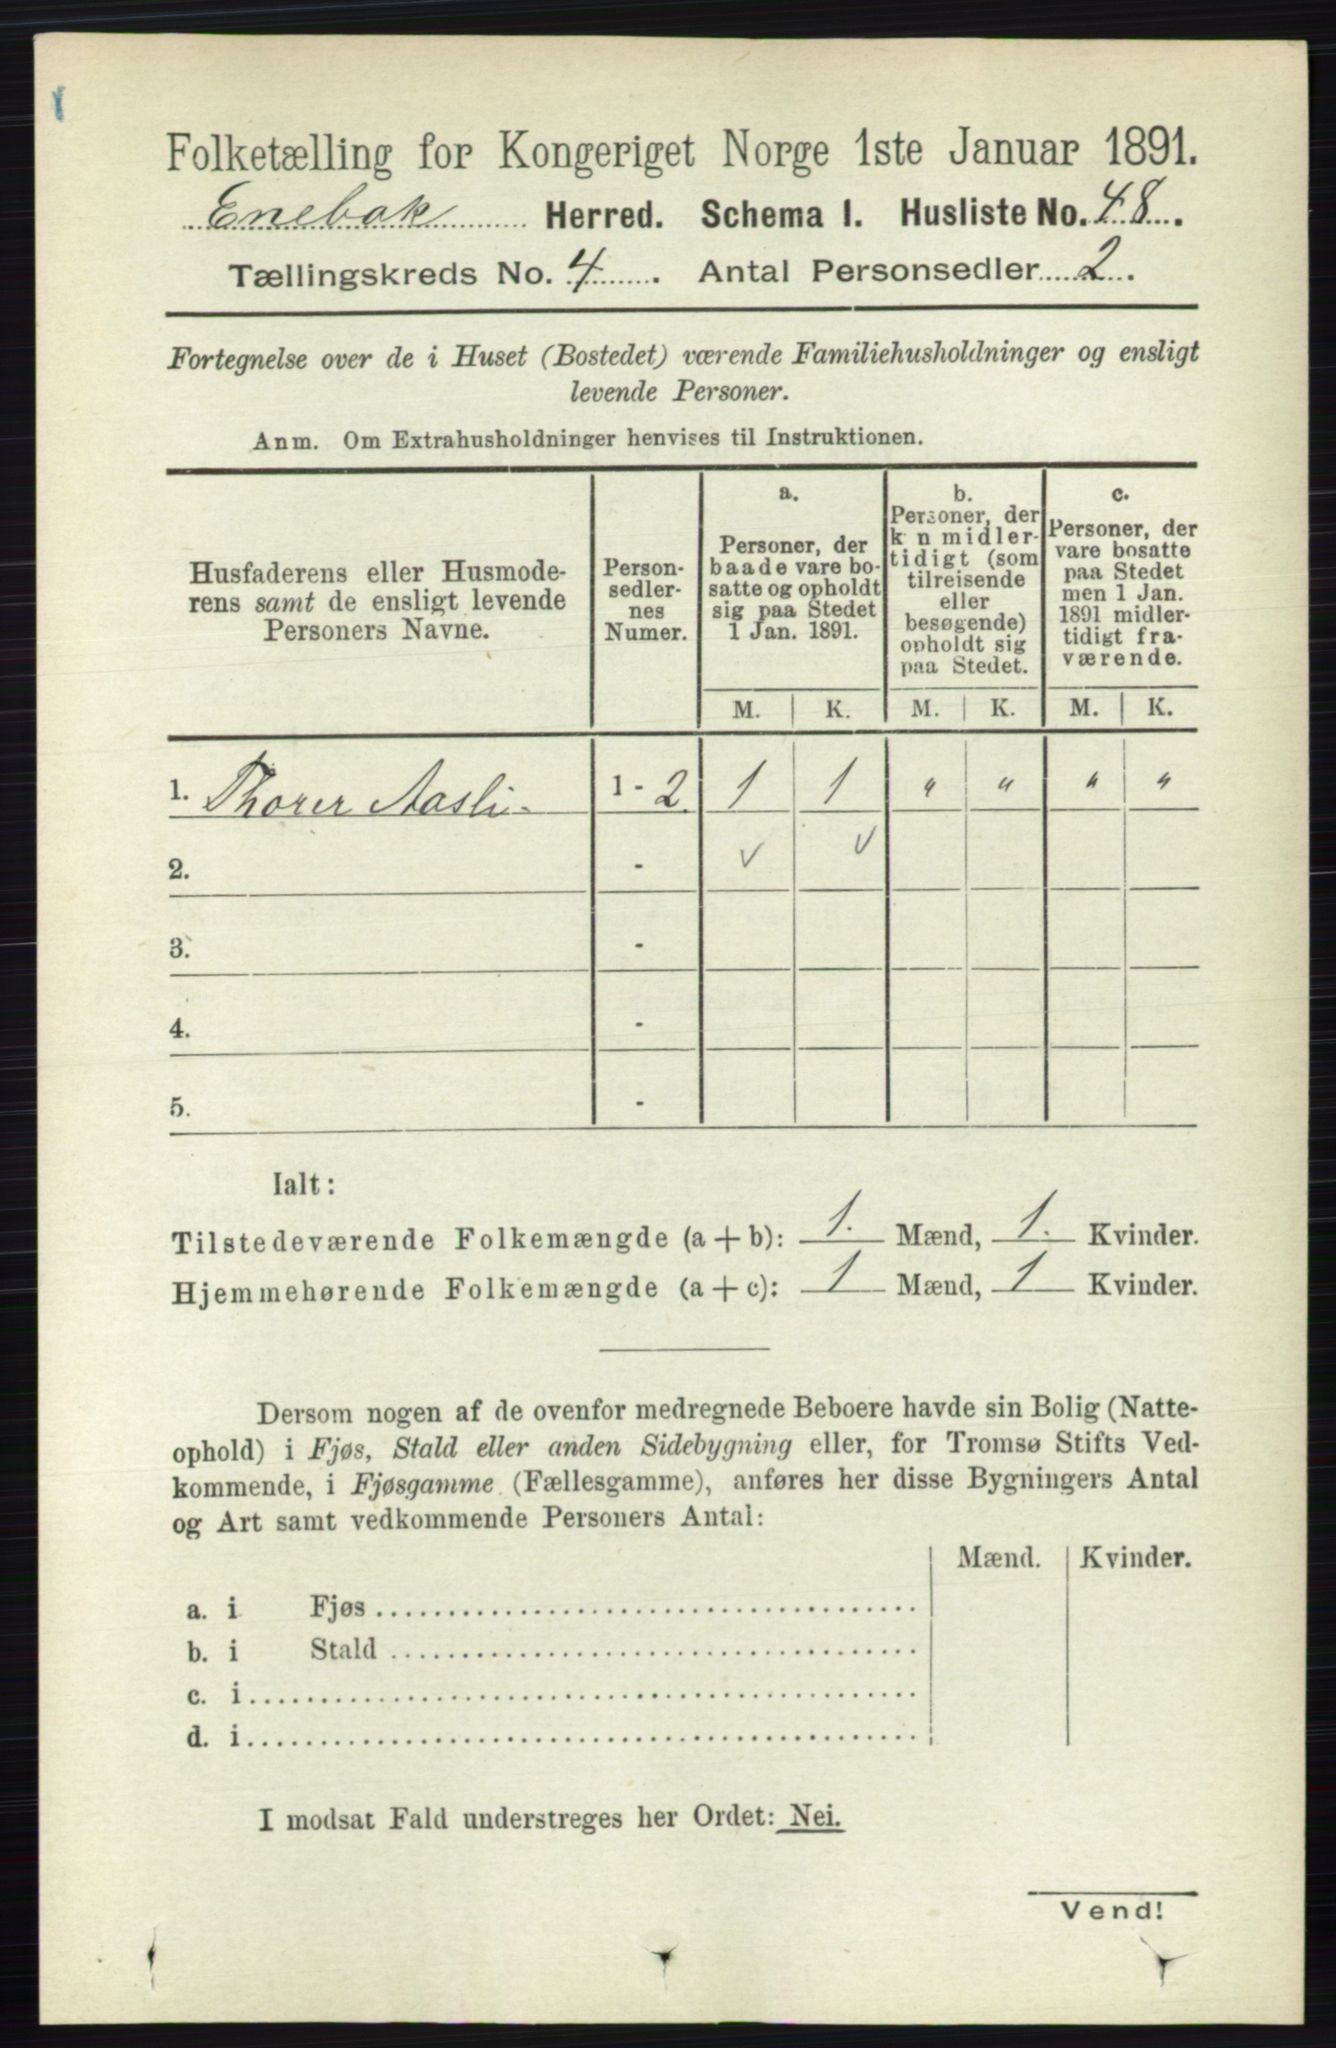 Folketælling for Kongeriget Norge 1ste Januar 1891.
Enebak Herred. Schema I. Husliste No. 48.
Tællingskreds No. 4. Antal Personsedler 2.
Fortegnelse over de i Huset (Bostedet) værende Familiehusholdninger og ensligt
levende Personer.
Anm. Om Extrahusholdninger henvises til Instruktionen.
Husfaderens eller Husmode-
rens samt de ensligt levende
Personers Navne.
Person-
sedler-
nes
Numer.
a.
Personer, der
baade vare bo-
satte og opholdt
sig paa Stedet
1 Jan. 1891.
b.
Personer, der
k n midler-
tidigt (som
tilreisende
eller
besøgende)
opholdt sig
paa Stedet.
c.
Personer, der
vare bosatte
paa Stedet
men 1 Jan.
1891 midler-
tidigt fra-
værende.
M. K. M. K. M. K.
1. Thorer Aasli 1 - 2 1 1 " " " "
2. - ✓ ✓
3. -
4. -
5. -
Ialt:
Tilstedeværende Folkemængde (a + b): 1. Mænd, 1. Kvinder.
Hjemmehørende Folkemængde (a + c): 1 Mænd, 1 Kvinder.
Dersom nogen af de ovenfor medregnede Beboere havde sin Bolig (Natte-
ophold) i Fjøs, Stald eller anden Sidebygning eller, for Tromsø Stifts Ved-
kommende, i Fjøsgamme (Fællesgamme), anføres her disse Bygningers Antal
og Art samt vedkommende Personers Antal:
Mænd. Kvinder.
a. i Fjøs
b. i Stald
c. i
d. i
I modsat Fald understreges her Ordet: Nei.
Vend!